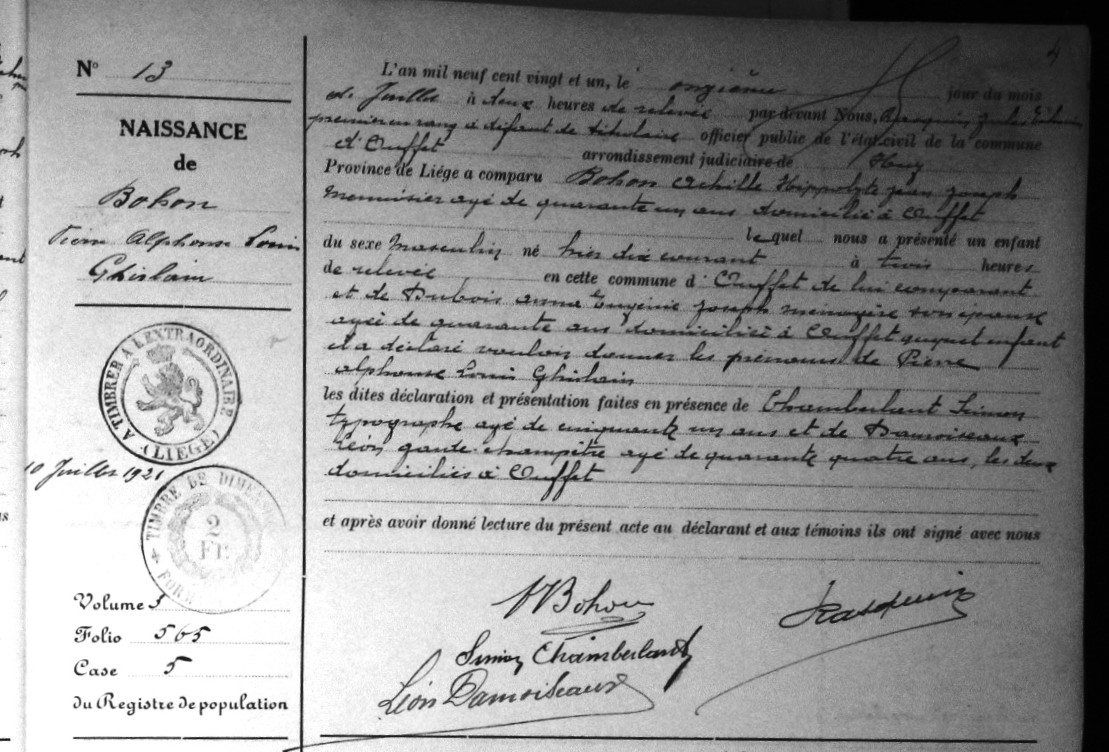 N° 13
NAISSANCE
de
Bohon
Pierre Alphonse Louis
Ghislain
A TIMBRER A L'EXTRAORDINAIRE
(LIEGE)
10 Juillet 1921
TIMBRE DE DIMENSION
2
FR.
Volume 3
Folio 565
Case 5
du Registre de population
4
L'an mil neuf cent vingt et un, le onzième jour du mois
de Juillet à deux heures de relevée par devant Nous, Jules
premier en rang à défaut de titulaire officier public de l'état civil de la commune
d'Ouffet arrondissement judiciaire de Huy
Province de Liége a comparu Bohon Achille Hippolyte jean joseph
menuisier agé de quarante un ans domicilié à Ouffet
lequel nous a présenté un enfant
du sexe masculin né hier dix courant à trois heures
de relevée en cette commune d'Ouffet de lui comparant
et de Dubois anna Eugénie joseph menagère son épouse
agée de quarante ans domiciliée à Ouffet auquel enfant
il a déclaré vouloir donner les prénoms de Pierre
alphonse Louis Ghislain
les dites déclaration et présentation faites en présence de Chamberlant Simon
typographe agé de cinquante un ans et de Damoiseaux
Léon garde-champêtre agé de quarante quatre ans, les deux
domiciliés à Ouffet
et après avoir donné lecture du présent acte au déclarant et aux témoins ils ont signé avec nous
Bohon
Rasquin
Simon Chamberlant
Léon Damoiseaux